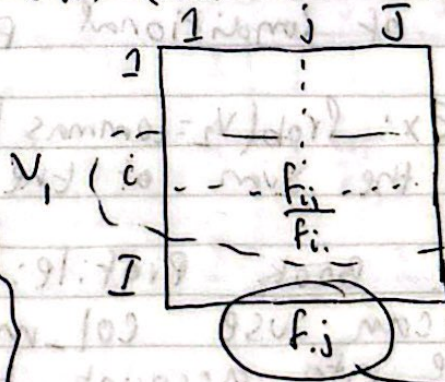 1 j J
1
V₁ i fij
fi.
I
f.j